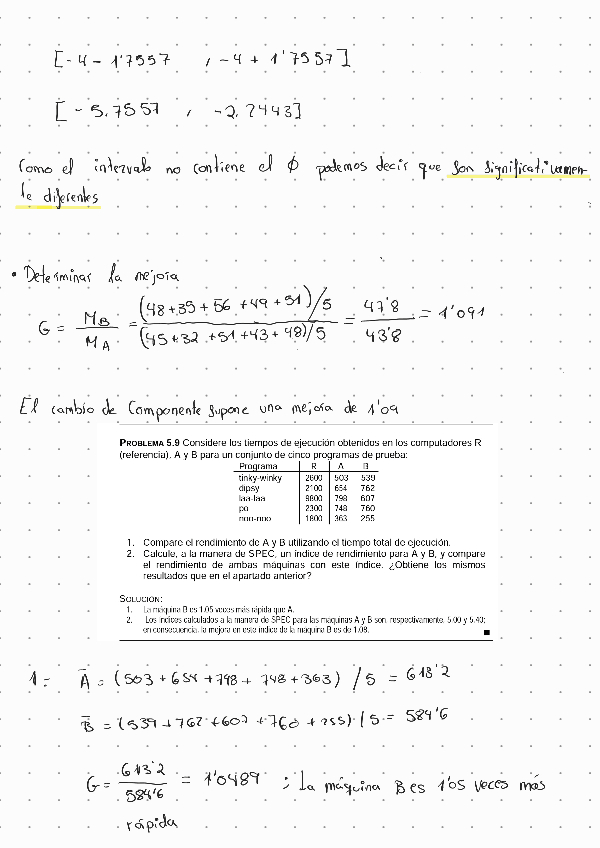 [-4 - 1'7557 , -4 + 1'7557]
[-5.7557 , -2.2443]
Como el intervalo no contiene el Ø podemos decir que son significativamen-
te diferentes
• Determinar la mejora
G = M_B / M_A = ((48+35+56+49+51)/5) / ((45+32+51+43+48)/5) = 47'8 / 43'8 = 1'091
El cambio de componente supone una mejora de 1'09
PROBLEMA 5.9 Considere los tiempos de ejecución obtenidos en los computadores R
(referencia), A y B para un conjunto de cinco programas de prueba:
Programa R A B
tinky-winky 2600 503 539
dipsy 2100 654 762
laa-laa 9800 798 607
po 2300 748 760
noo-noo 1800 363 255
1. Compare el rendimiento de A y B utilizando el tiempo total de ejecución.
2. Calcule, a la manera de SPEC, un índice de rendimiento para A y B, y compare
el rendimiento de ambas máquinas con este índice. ¿Obtiene los mismos
resultados que en el apartado anterior?
SOLUCIÓN:
1. La máquina B es 1.05 veces más rápida que A.
2. Los índices calculados a la manera de SPEC para las máquinas A y B son, respectivamente, 5.00 y 5.40;
en consecuencia, la mejora en este índice de la máquina B es de 1.08.
1= Ā = (503 + 654 + 798 + 748 + 363) / 5 = 613'2
B̄ = (539 + 762 + 607 + 760 + 255) / 5 = 584'6
G = 613'2 / 584'6 = 1'0489 ; la máquina B es 1'05 veces más
rápida